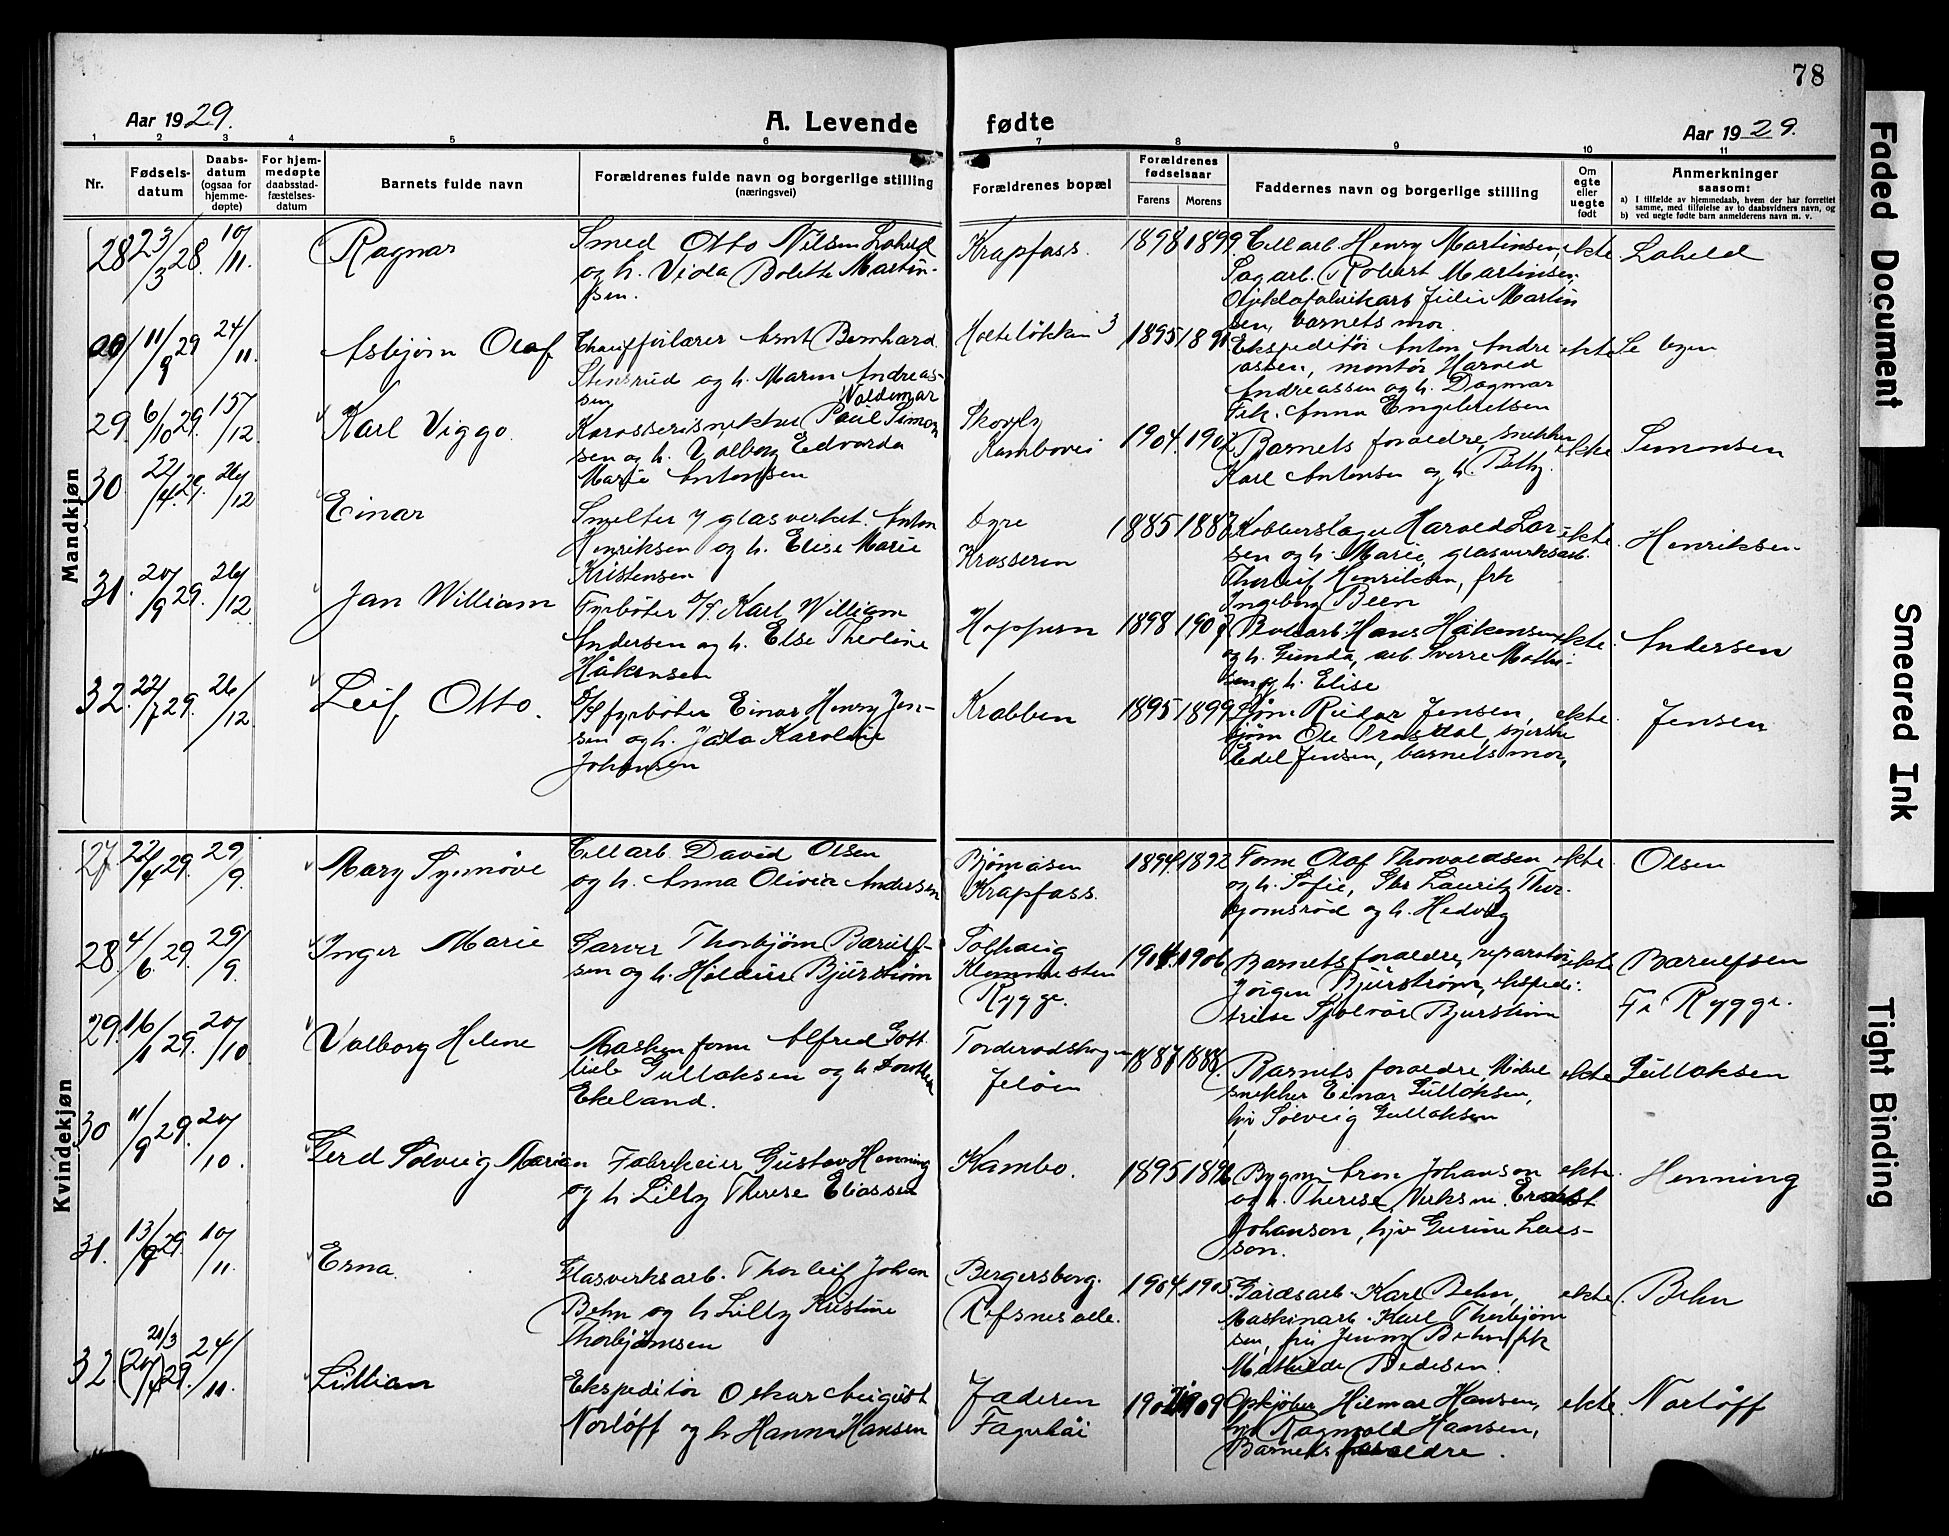 78
Aar 1929.
A. Levende fødte
Aar 1929.
1 2 3 4 5 6 7 8 9 10 11
Nr.
Fødsels-
datum
Daabs-
datum
(ogsaa for
hjemme-
døpte)
For hjem-
medøpte
daabsstad-
fæstelses-
datum
Barnets fulde navn
Forældrenes fulde navn og borgerlige stilling
(næringsvei)
Forældrenes bopæl
Forældrenes
fødselsaar
Farens
Morens
Faddernes navn og borgerlige stilling
Om
egte
eller
uegte
født
Anmerkninger
saasom:
a) I tilfælde av hjemmedaab, hvem der har forrettet
samme, med tilføielse av to daabsvidners navn, og
b) ved uegte fødte barn anmelderens navn m. v.
Mandkjøn
28 23/3 28. 10/11. Ragnar
Smed Otto Nilsen Løheld
og h. Viola Bolette Martin-
sen.
Krapfoss. 1898 1899.
Cell.arb. Henry Martinsen,
Sagarb. Robert Martinsen,
Martin
sen, barnets mor
ekte Løheld
11/9 29 24/11. Asbjørn Olaf
Arnt Bernhard
Stensrud og h. Maren Andreas-
sen
1895
Ekspeditør Anton Andre
assen, montør Harald
Andreassen og h. Dagmar
Frk. Anna Engebretsen
ekte
29. 6/10 29. 15/12 Karl Viggo.
Valdemar
Paul Simon
sen og h. Valborg Edvarda
Marie Antonsen
Skovly
Kambovei 1904.
Barnets foraldre, snekker
Karl Antonsen og h. Betty.
ekte Simonsen
30 22/4 29. 26/12 Einar
Smelter v glasverket. Anton
Henriksen og h. Elise Marie
Kristensen
Øyre
Krosseren 1885
Kobberslager Harald Lar-
sen og h. Marie, glasverksarb.
Thorleif Henriksen, frk
Ingeborg Been
ekte. Henriksen
31. 20/9 29. 26/12 Jan William
Fyrbøter Karl William
Andersen og h. Else Theoline
Håkensen
Noppern 1898
Hans Håkensen
og h. Gunda, arb. Sverre Mathi-
sen og h. Elise
ekte. Andersen
32. 22/7 29. 26/12 Leif Otto.
D/S fyrbøter Einar Henry Jen-
sen og h. Karoline
Johansen
Krabben 1895 1899
Sjøm. Reidar Jensen,
sjøm Ole
Edel Jensen, barnets mor,
ekte. Jensen
Kvindekjøn
27. 22/4 29. 29/9. Mary Synnøve
Cell arb. David Olsen
og h. Anna Olivia Andersen
Bjørnåsen
Krapfoss. 1894. 1892
Form Olaf Thorvaldsen
og h. Sofie, Gbr Lauritz Thor-
bjørnsrød og h. Hedvig
ekte. Olsen
28 4/6. 29. 29/9 Inger Marie
Garver Thorbjørn Børulf-
sen og h. Bjurstrøm
Solhaug
Klommesten
Rygge. 1906
Barnets foraldre, reparatør
Jørgen Bjurstrøm, ekspedi-
trise Bjurstrøm
ekte Børulfsen
Fr Rygge.
29. 16/1 29. 20/10 Valborg Helene
Masken form Alfred Gott
lieb Gulloksen og h. Dorothea
Ekeland.
Jeløen 1887 1888.
Barnets foraldre,
snekker Einar Gulloksen,
hjv Solveig Gulloksen
ekte Gulloksen
30 11/9 29. 20/10. Gerd Solveig Marian
Fabrikeier Gustav Henning
og h Lilly Therese Eliassen
Kambo. 1895
Bygm. Aron Johanson
og h. Therese,
Johanson, hjv Gurine Lars-
son.
ekte. Henning
31. 13/9 29. 10/11. Erna.
Glasverksarb. Thorleif Johan
Behn og h Lilly Kristine
Thorbjørnsen
Bergersborg.
Refsnesalle. 1904. 1905.
Gardsarb. Karl Behn,
Maskinarb. Karl Thorbjørn
sen, fru Jenny Behn, frk
Mathilde Pedersen
ekte. Behn
32. 21/3 (20/4) 29. 24/11. Lillian
Ekspeditør Oskar August
Norløff og h Hanna Hansen
Jæderen
Fagerhøi 1909
Opkjøber Hilmar Hansen,
hjv Ragnvald Hansen,
Barnets foraldre.
ekte. Norløff
Faded Document
Smeared Ink
Tight Binding